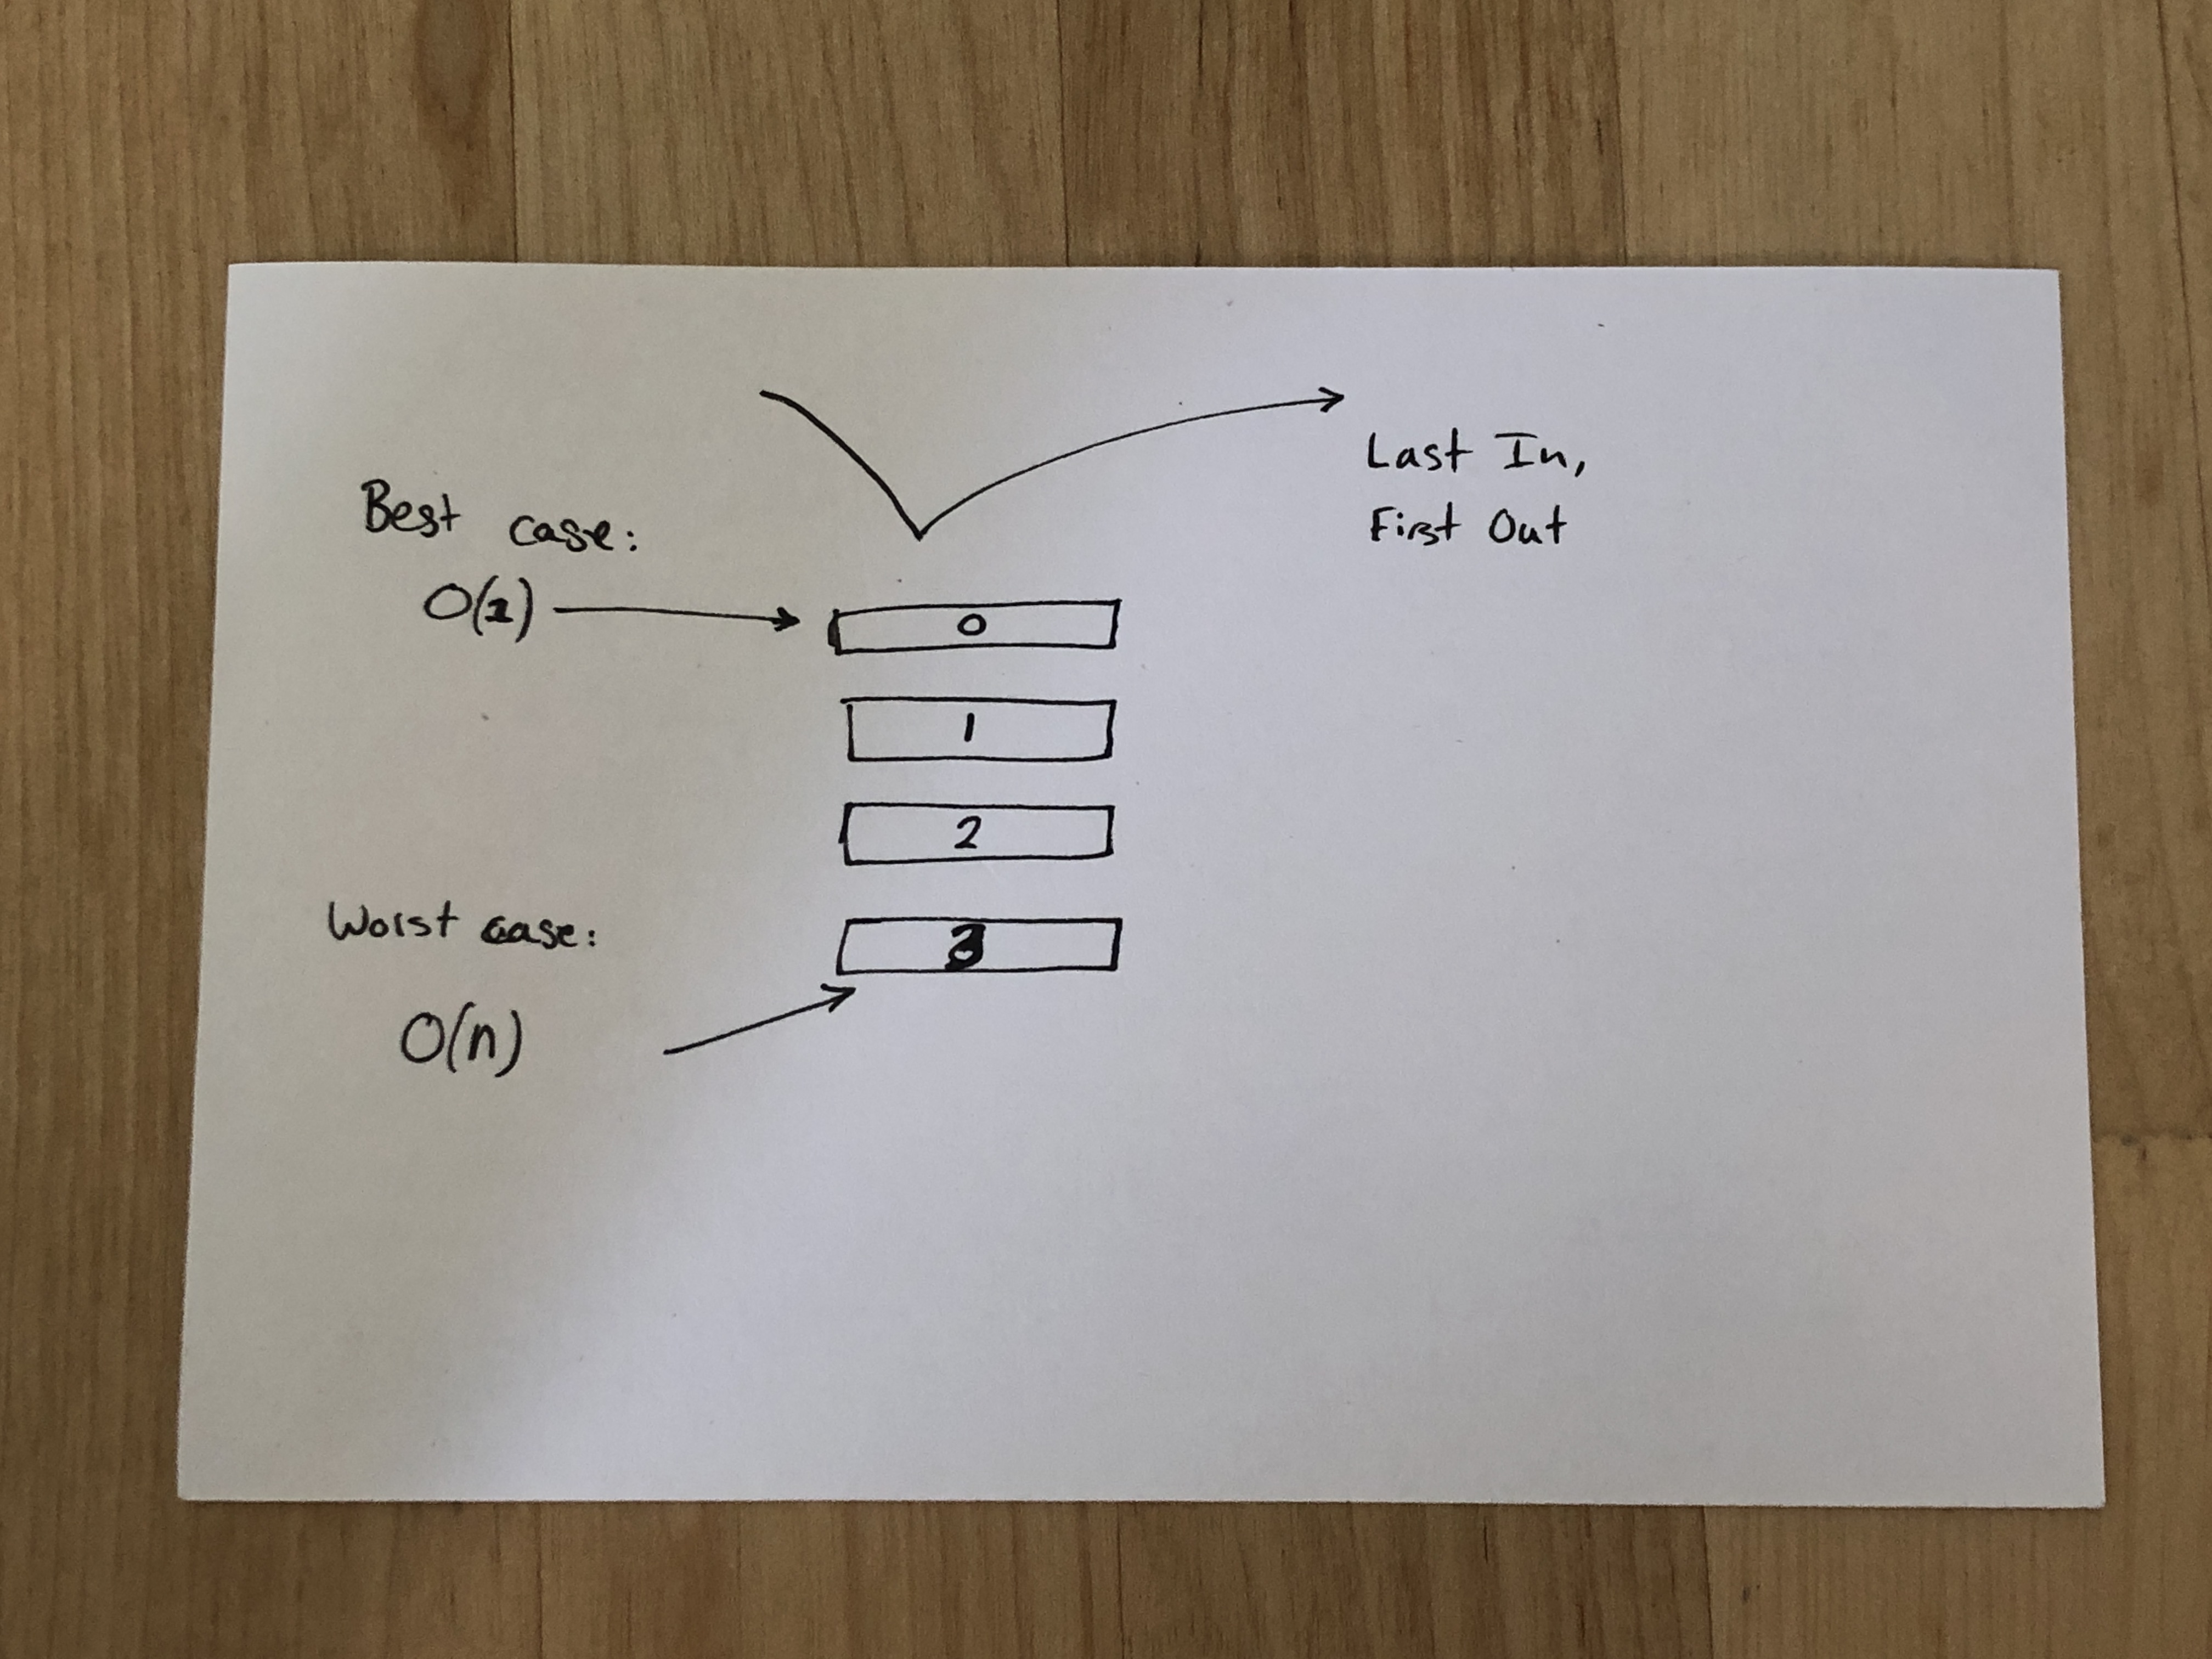 Last In,
First Out
Best case:
O(1)
0
1
2
Worst case:
3
O(n)